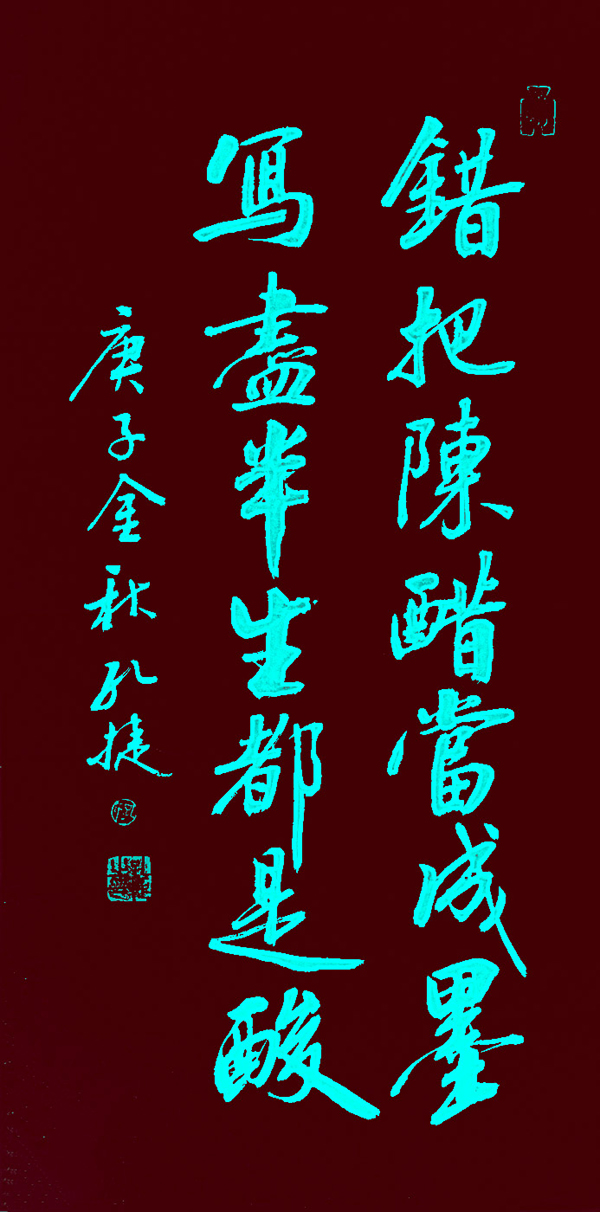 錯把陳醋當成墨
寫盡半生都是酸
庚子金秋孔捷